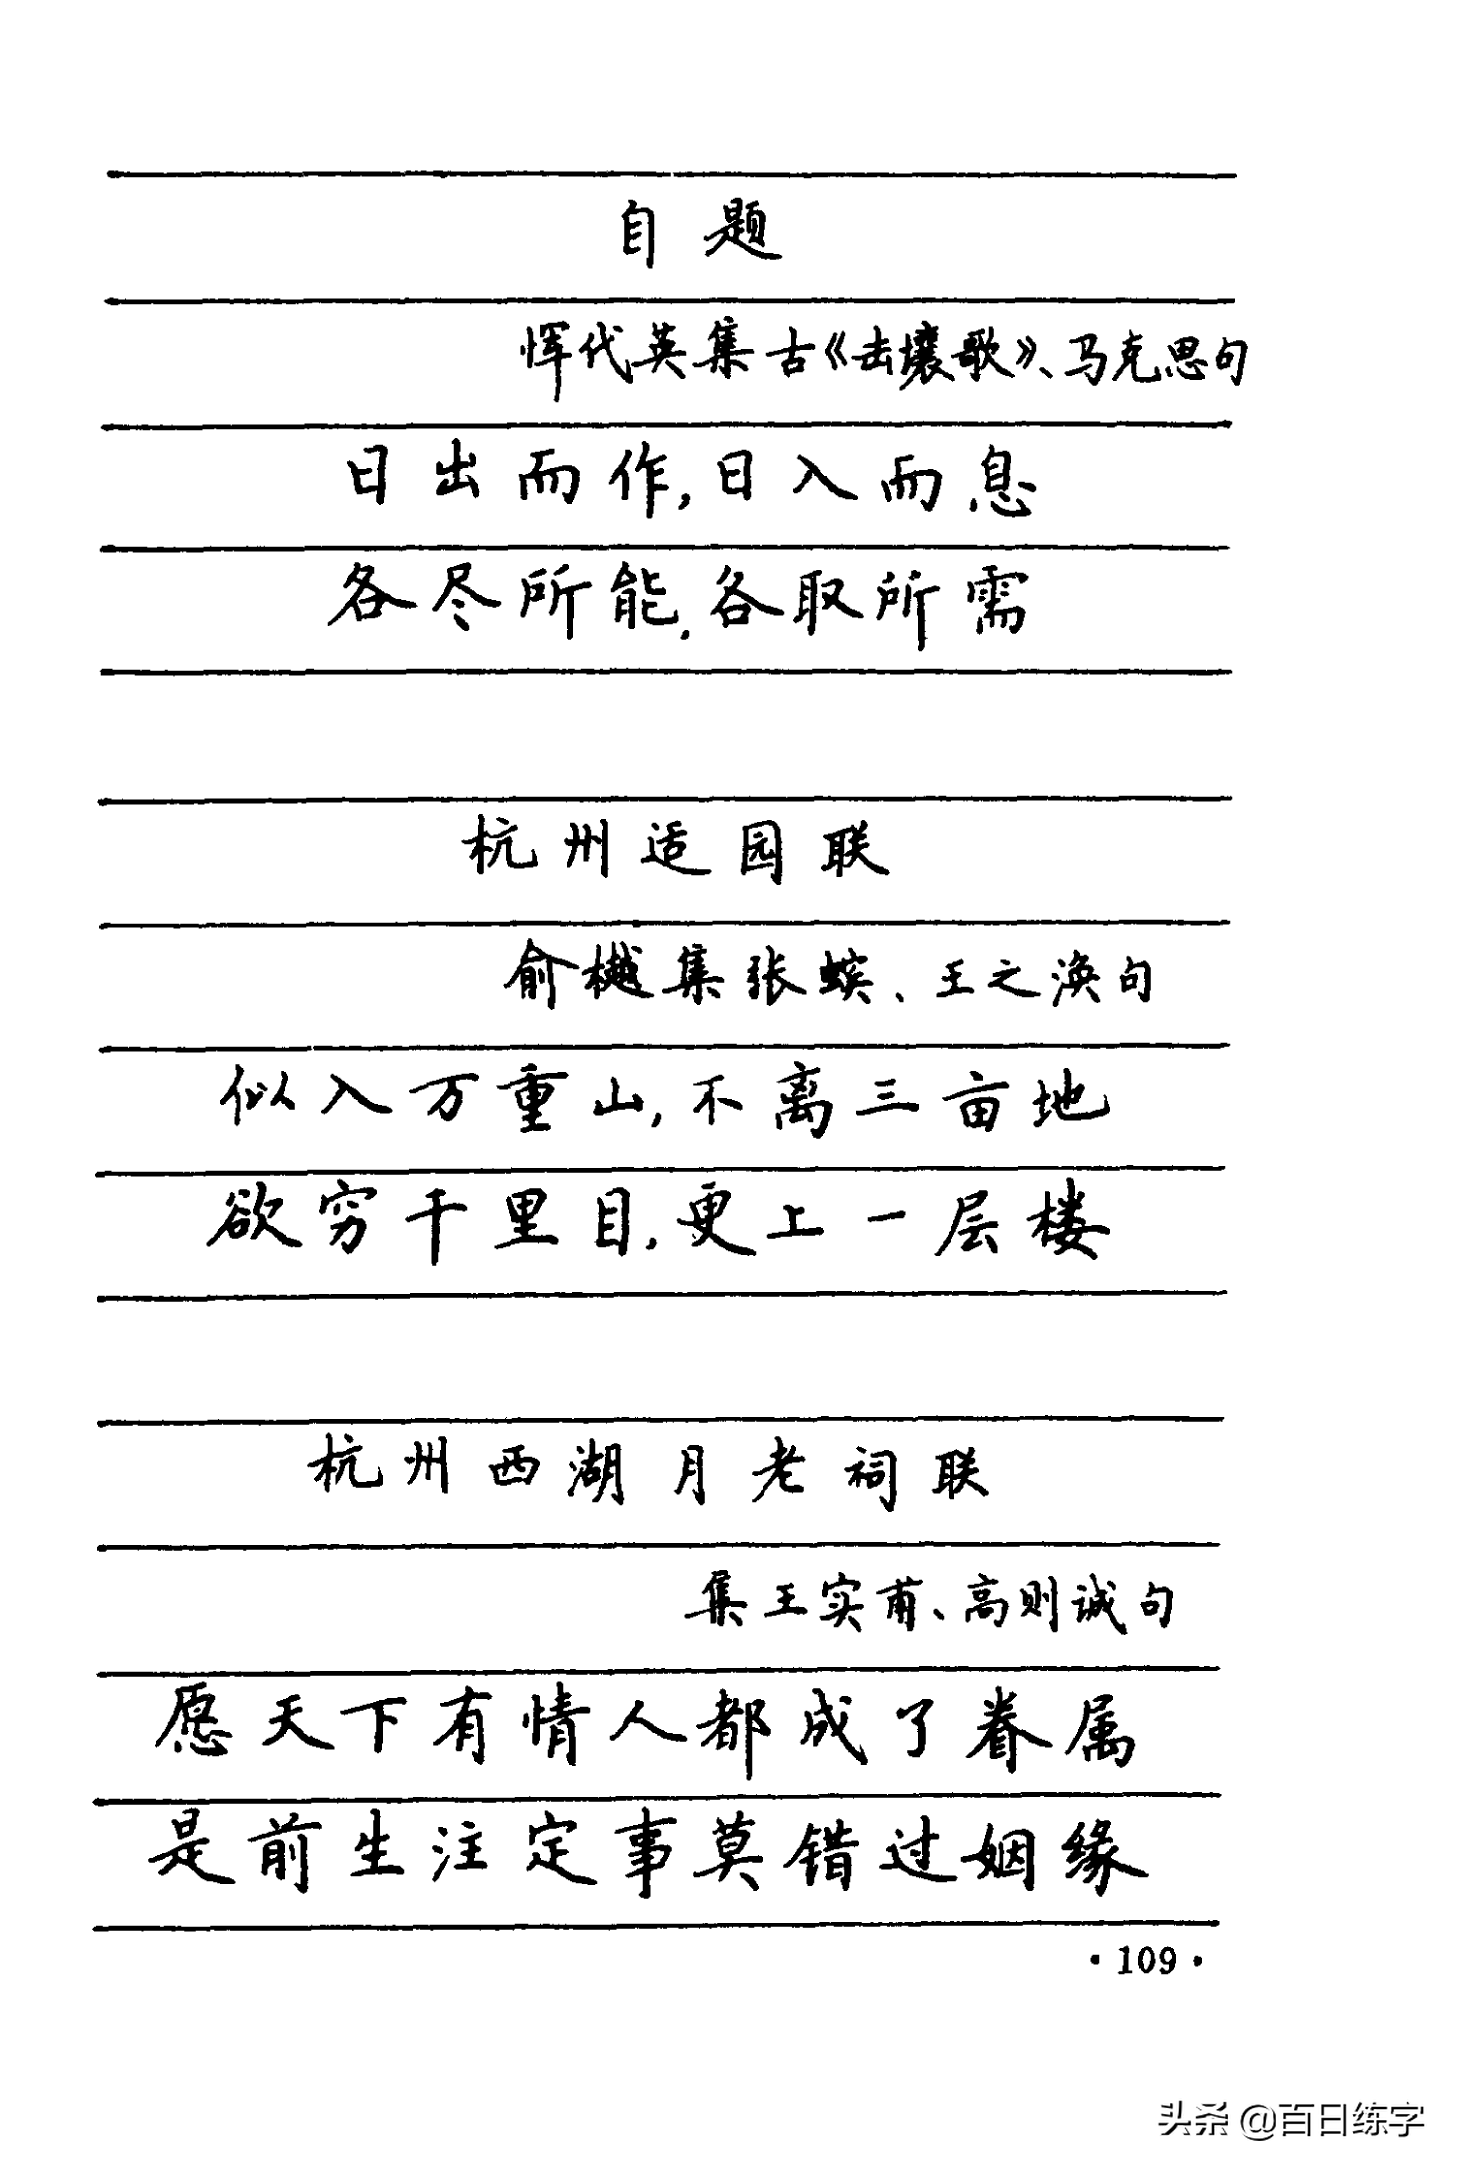 自题
恽代英集古《击壤歌》、马克思句
日出而作,日入而息
各尽所能,各取所需
杭州适园联
俞樾集张蠙、王之涣句
似入万重山,不离三亩地
欲穷千里目,更上一层楼
杭州西湖月老祠联
集王实甫、高则诚句
愿天下有情人都成了眷属
是前生注定事莫错过姻缘
·109·
头条 @百日练字